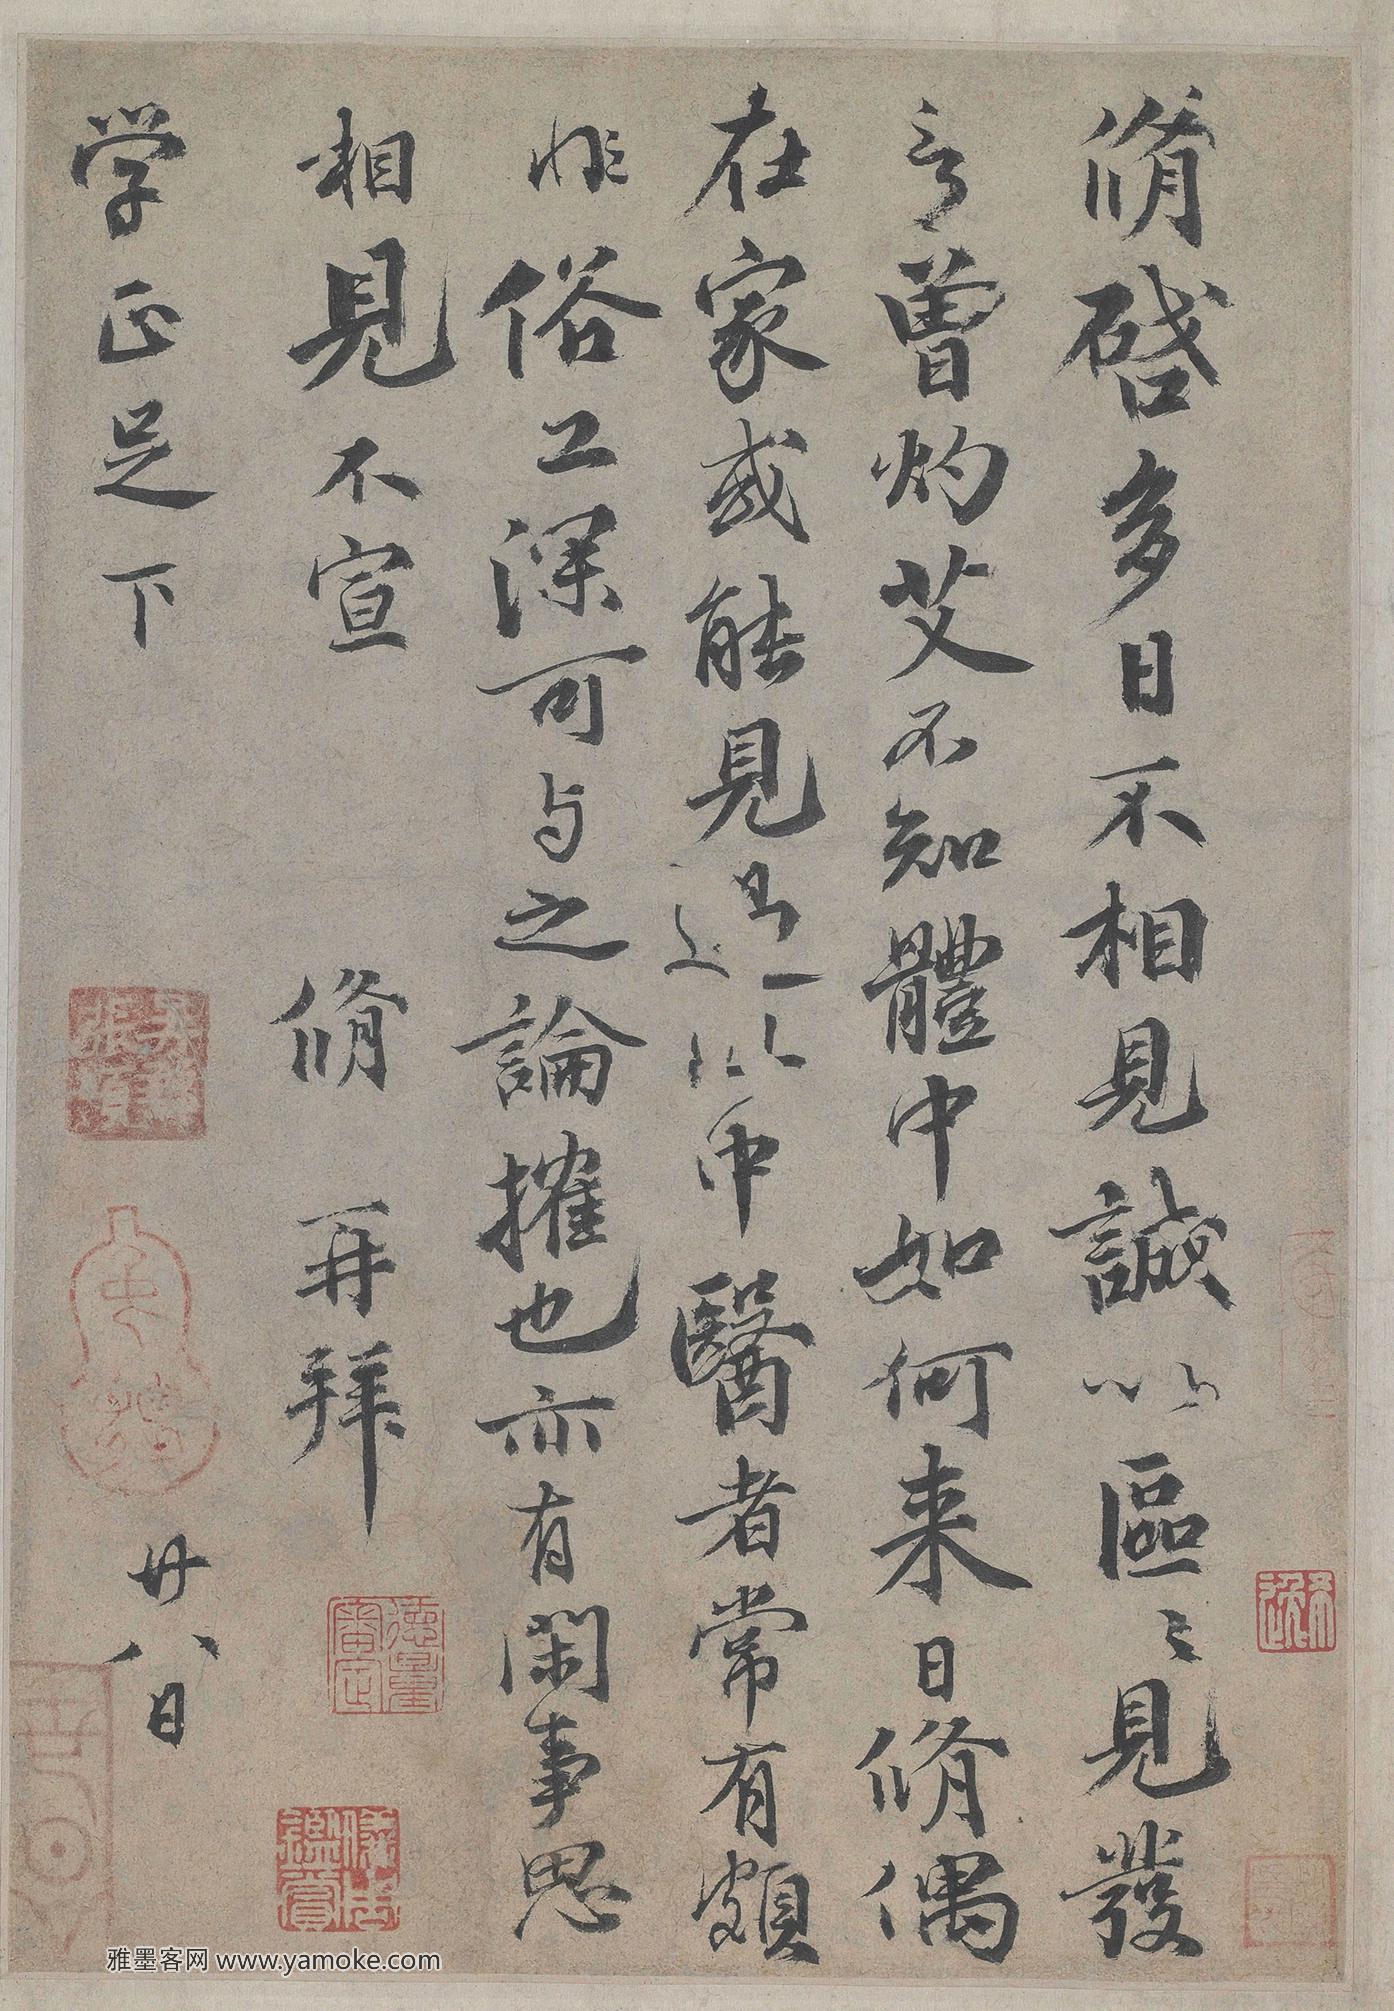 脩啓多日不相見誠以區〻見發
言曾灼艾不知體中如何来日脩偶
在家或能見過此中醫者常有頗
非俗工深可与之論搉也亦有閑事思
相見不宣　脩　再拜
学正足下　廿八日
雅墨客网 www.yamoke.com